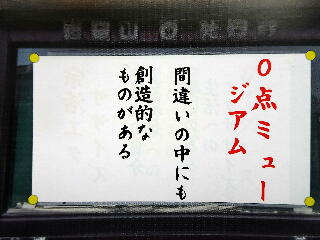 ０点ミュー
ジアム
間違いの中にも
創造的な
ものがある